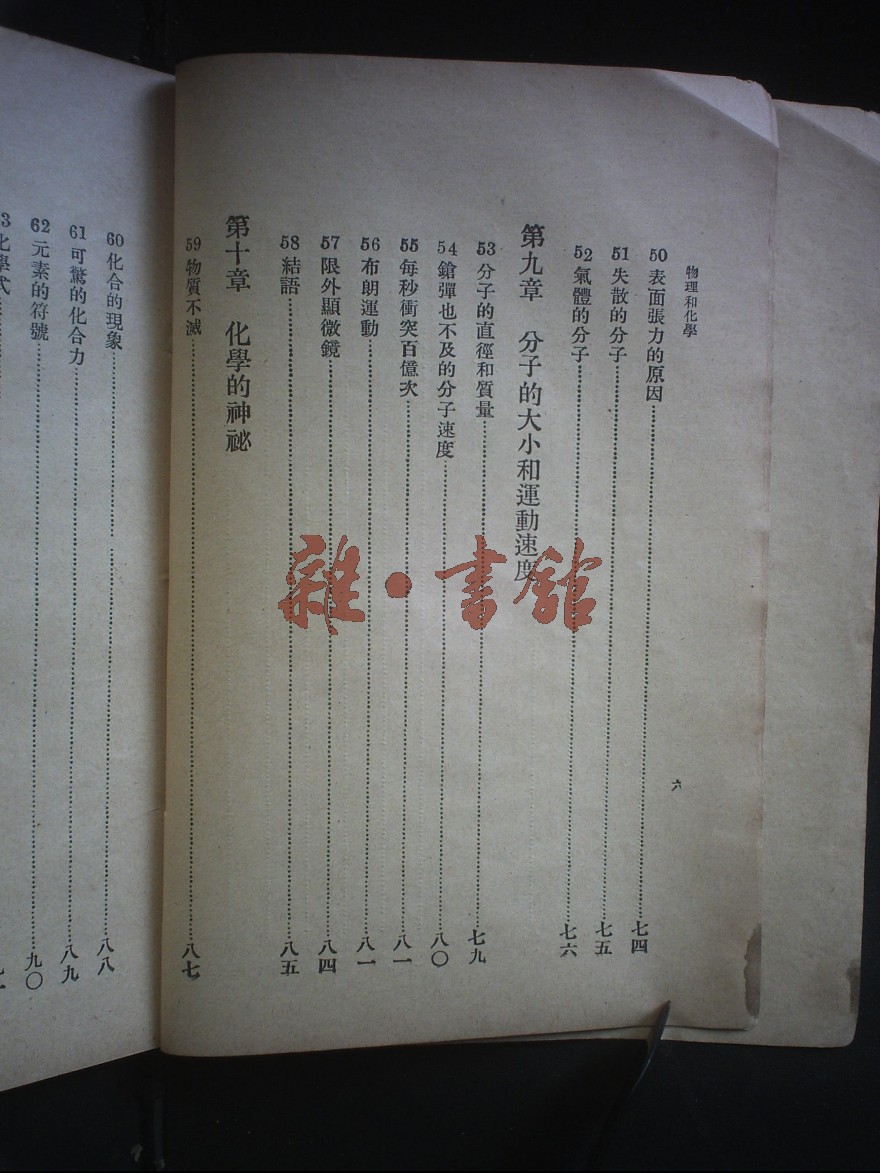 物理和化學
六
50 表面張力的原因 七四
51 失散的分子 七五
52 氣體的分子 七六
第九章 分子的大小和運動速度
53 分子的直徑和質量 七九
54 鎗彈也不及的分子速度 八〇
55 每秒衝突百億次 八一
56 布朗運動 八一
57 限外顯微鏡 八四
58 結語 八五
第十章 化學的神祕
59 物質不滅 八七
60 化合的現象 八八
61 可驚的化合力 八九
62 元素的符號 九〇
3 化學式
雜·書館